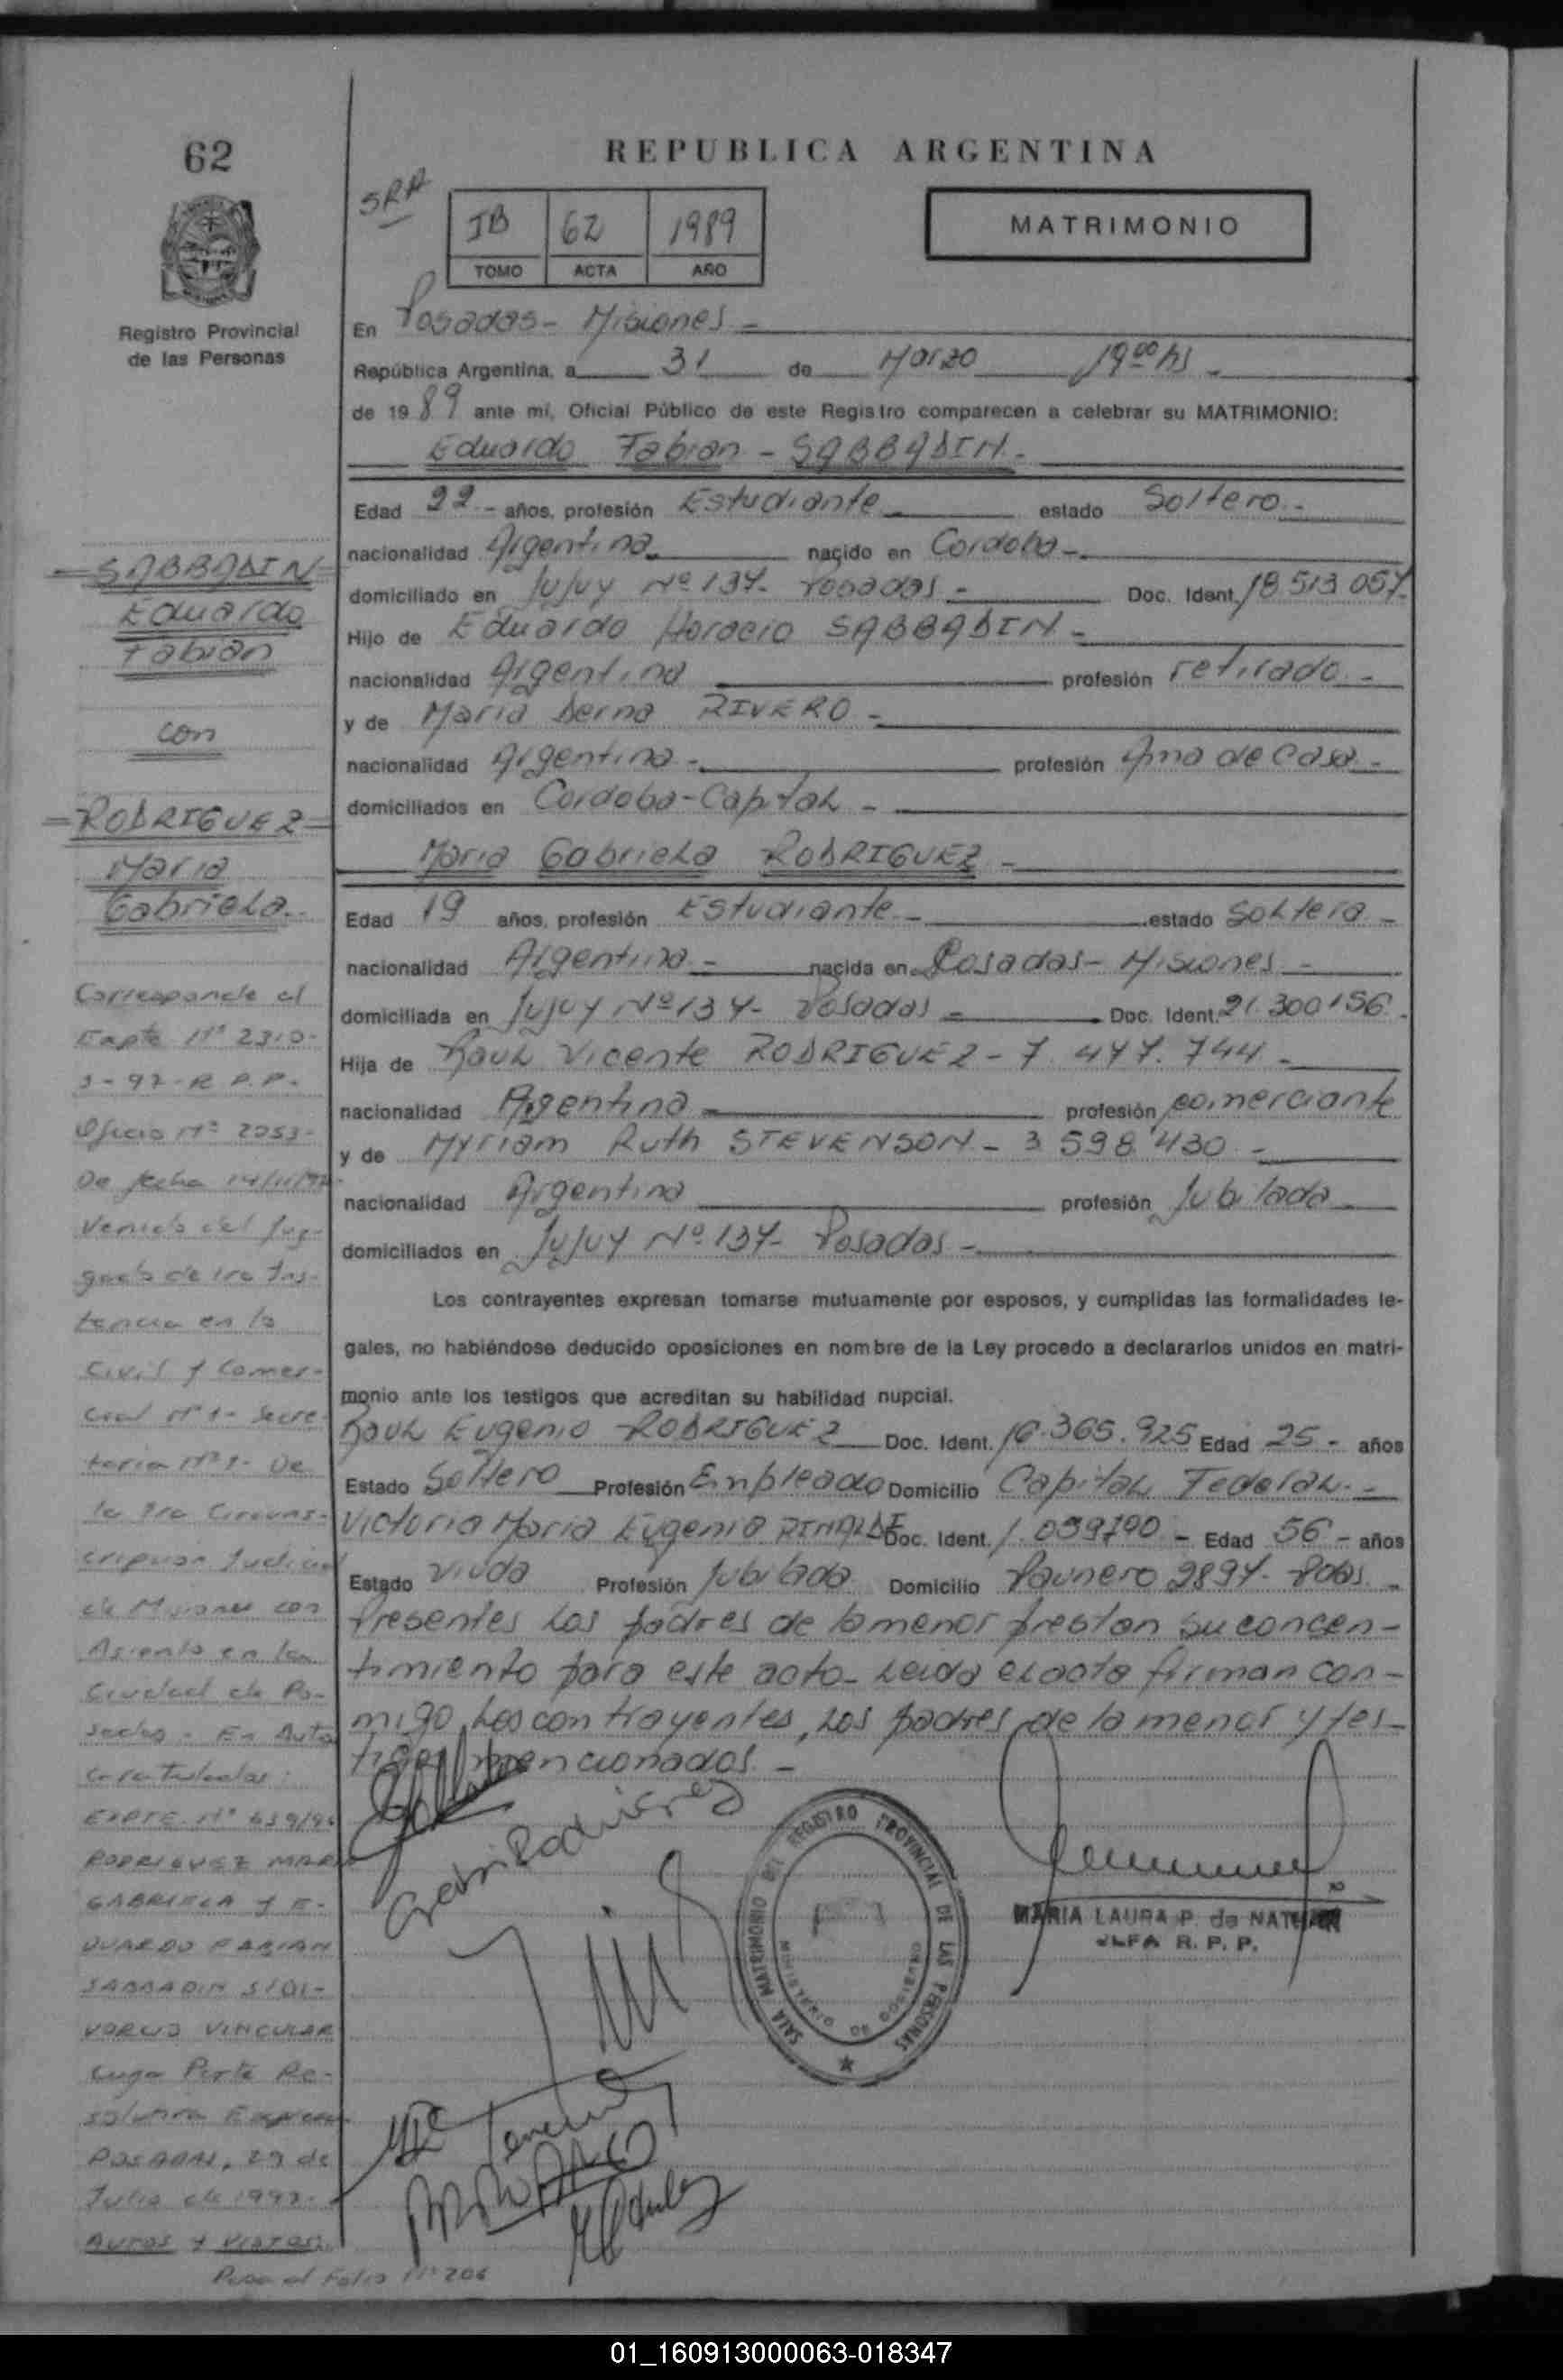 62
REPUBLICA ARGENTINA
SRA
IB 62 1989
TOMO ACTA AÑO
MATRIMONIO
Registro Provincial
de las Personas
En Posadas - Misiones -
República Argentina, a 31 de Marzo 19 00 hs -
de 1989 ante mí, Oficial Público de este Registro comparecen a celebrar su MATRIMONIO:
Eduardo Fabian - SABBADIN -
Edad 22 - años, profesión Estudiante - estado Soltero -
nacionalidad Argentina - nacido en Cordoba -
domiciliado en Jujuy Nº 137 - Posadas - Doc. Ident. 18.513.057-
Hijo de Eduardo Horacio SABBADIN -
nacionalidad Argentina profesión retirado -
y de Maria Derna RIVERO -
nacionalidad Argentina - profesión Ama de Casa -
domiciliados en Cordoba - Capital -
Maria Gabriela RODRIGUEZ -
Edad 19 años, profesión Estudiante - estado Soltera -
nacionalidad Argentina - nacida en Posadas - Misiones -
domiciliada en Jujuy Nº 137 - Posadas - Doc. Ident. 21.300156-
Hija de Raul Vicente RODRIGUEZ - 7.477.744 -
nacionalidad Argentina profesión comerciante
y de Myriam Ruth STEVENSON - 3 598 430 -
nacionalidad Argentina profesión Jubilada
domiciliados en Jujuy Nº 137 - Posadas -
Los contrayentes expresan tomarse mutuamente por esposos, y cumplidas las formalidades le-
gales, no habiéndose deducido oposiciones en nombre de la Ley procedo a declararlos unidos en matri-
monio ante los testigos que acreditan su habilidad nupcial.
Raul Eugenio RODRIGUEZ Doc. Ident. 16.365.925 Edad 25 - años
Estado Soltero Profesión Empleado Domicilio Capital Federal -
Victoria Maria Eugenia RINALDI Doc. Ident. 1.099790 - Edad 56 - años
Estado Viuda Profesión Jubilada Domicilio Paunero 2897 - Pdas -
Presentes los padres de la menor prestan su concen-
timiento para este acto - Leida el acta firman con-
migo, los contrayentes, los padres de la menor y tes-
tigos mencionados. -
SABBADIN
Eduardo
Fabian
con
RODRIGUEZ
Maria
Gabriela.
Corresponde al
Expte Nº 2310-
J-97-R.P.P.
Oficio Nº 2053-
De fecha 14/11/97
Venido del Juz-
gado de 1ra Ins-
tancia en lo
Civil y Comer-
cial Nº 1- Secre-
taria Nº 1- De
la 1ra Circuns-
cripcion Judicial
de Misiones con
Asiento en la
Ciudad de Po-
sadas - En Autos
caratulados:
EXPTE. Nº 639/96
RODRIGUEZ MARIA
GABRIELA Y E-
DUARDO FABIAN
SABBADIN S/DI-
VORCIO VINCULAR
Cuya Parte Re-
solutiva Expresa
POSADAS, 29 de
Julio de 1997.-
AUTOS Y VISTOS:
Pasa al Folio Nº 206
Gabi Rodriguez
SALA MATRIMONIO DEL REGISTRO PROVINCIAL DE LAS PERSONAS
MINISTERIO DE GOBIERNO
MARIA LAURA P. de
JEFA R. P. P.
01_160913000063-018347